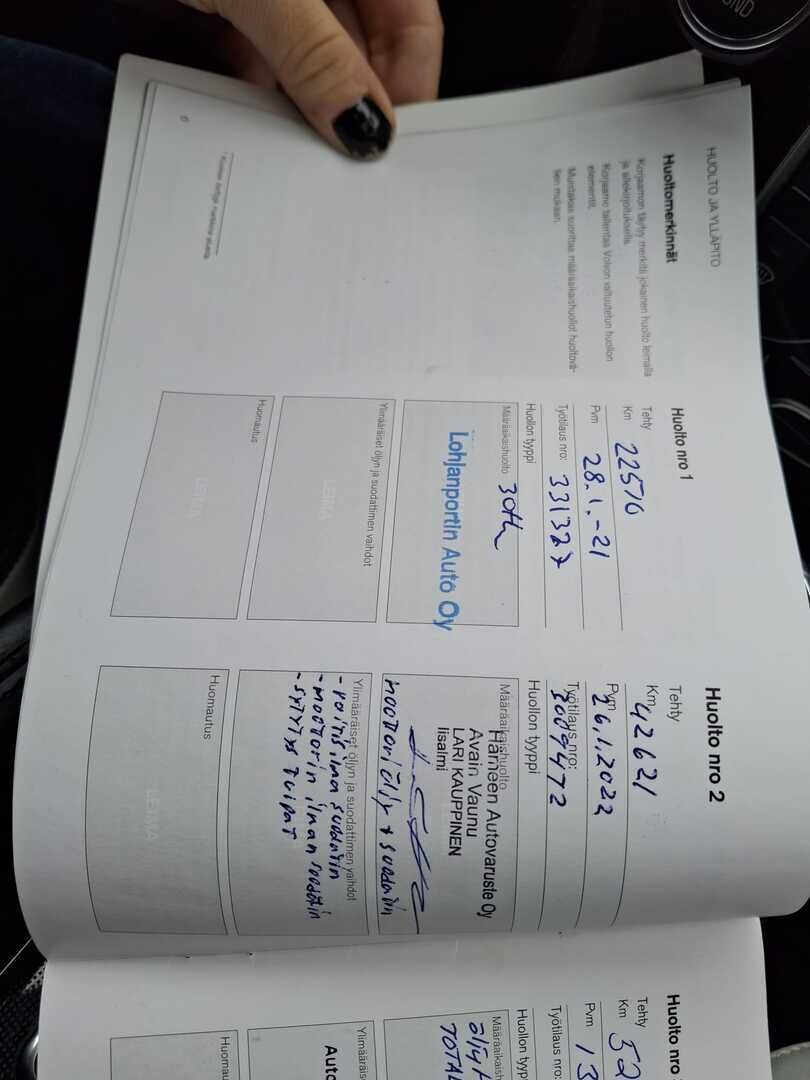 HUOLTO JA YLLÄPITO
Huoltomerkinnät
Korjaamon täytyy merkitä jokainen huolto leimalla
ja allekirjoituksella.
Korjaamo tallentaa Volvon valtuutetun huollon
elementit.
Muistakaa suorittaa määräaikaishuollot huoltovä-
lien mukaan.
6
Huolto nro 1
Tehty
Km 22570
Pvm 28.1.-21
Työtilaus nro: 331327
Huollon tyyppi
Määräaikaishuolto 30th
Lohjanportin Auto Oy
Ylimääräiset öljyn ja suodattimen vaihdot
LEIMA
Huomautus
LEIMA
Huolto nro 2
Tehty
Km 42621
Pvm 26.1.2022
Työtilaus nro:
Huollon tyyppi
Määräaikaishuolto
Hämeen Autovaruste Oy
Avain Vaunu
LARI KAUPPINEN
Iisalmi
moottoriöljy + suodatin
Ylimääräiset öljyn ja suodattimen vaihdot
- raitisilma suodatin
- moottorin ilman suodatin
- sytytys tulpat
Huomautus
LEIMA
Huolto nro
Tehty
Km 52
Pvm 13
Työtilaus nro:
Huollon tyyppi
Määräaikaish
öljy
TOTAL
Ylimääräise
Auto
Huomau